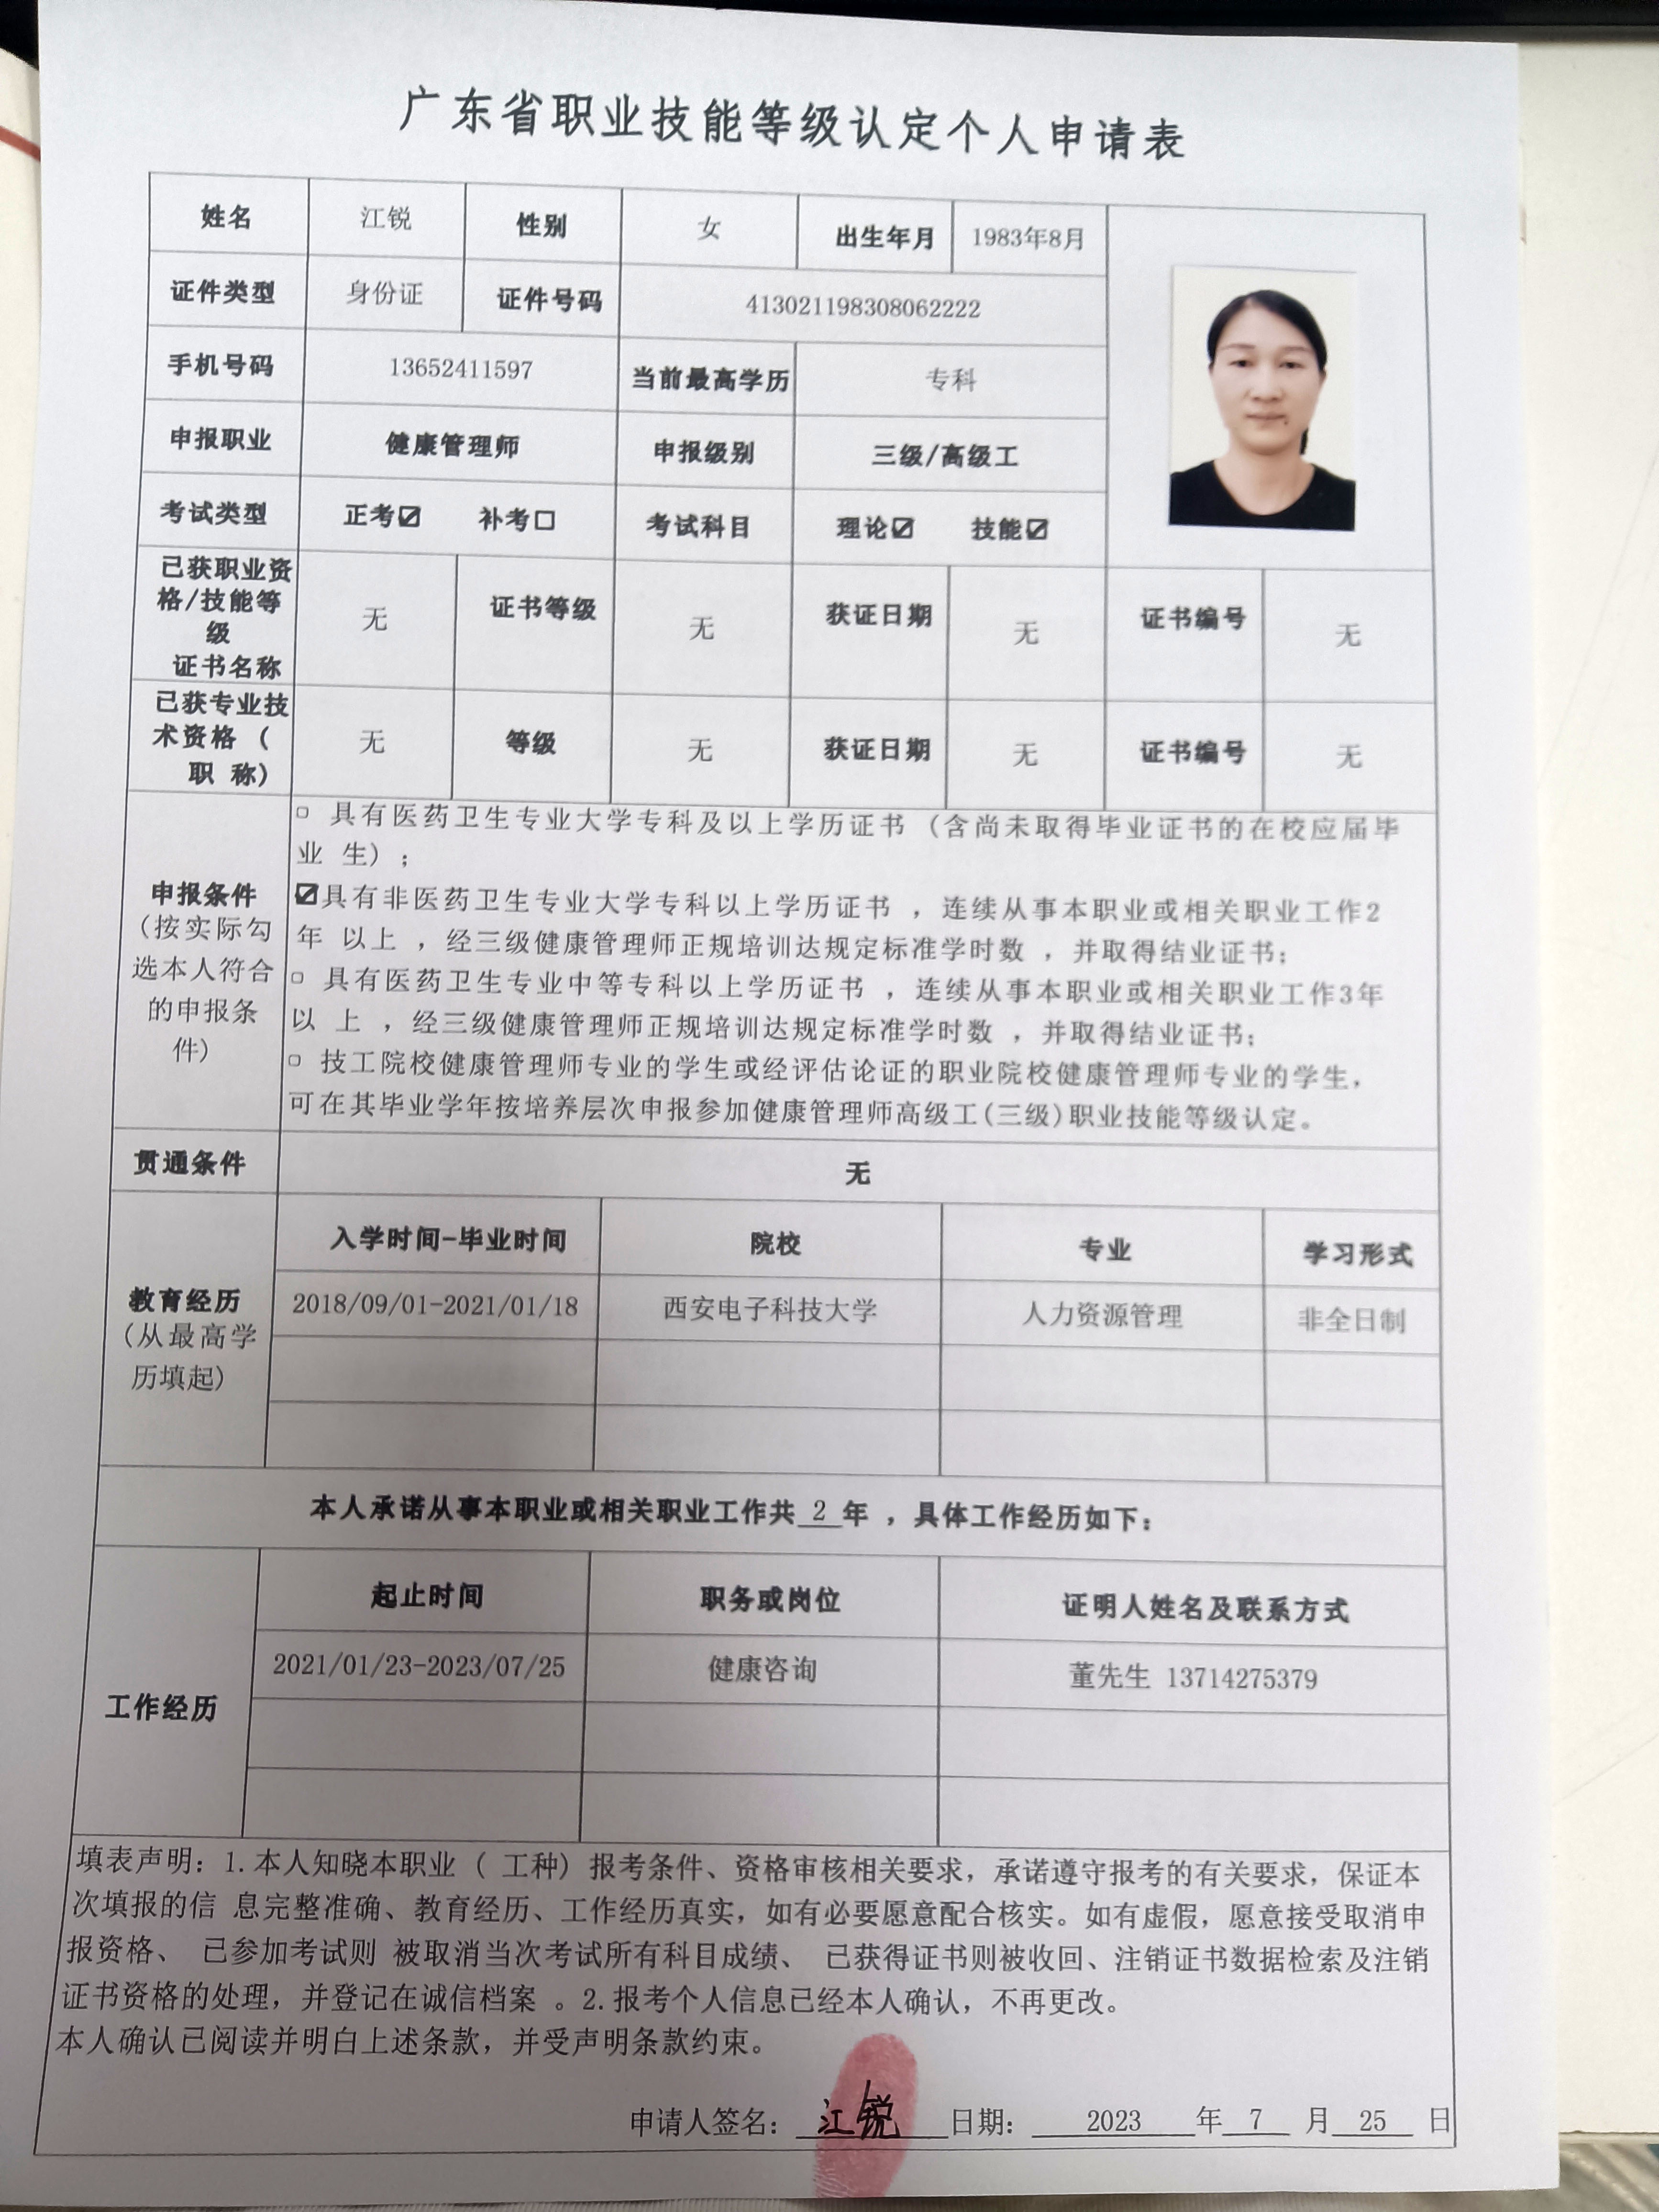 广东省职业技能等级认定个人申请表
姓名 江锐 性别 女 出生年月 1983年8月
证件类型 身份证 证件号码 413021198308062222
手机号码 13652411597 当前最高学历 专科
申报职业 健康管理师 申报级别 三级/高级工
考试类型 正考☑ 补考☐ 考试科目 理论☑ 技能☑
已获职业资
格/技能等
级
证书名称 无 证书等级 无 获证日期 无 证书编号 无
已获专业技
术资格 (
职 称) 无 等级 无 获证日期 无 证书编号 无
申报条件
(按实际勾
选本人符合
的申报条
件)
▫ 具有医药卫生专业大学专科及以上学历证书 (含尚未取得毕业证书的在校应届毕
业 生) ;
☑具有非医药卫生专业大学专科以上学历证书 ，连续从事本职业或相关职业工作2
年 以上 ，经三级健康管理师正规培训达规定标准学时数 ，并取得结业证书;
▫ 具有医药卫生专业中等专科以上学历证书 ，连续从事本职业或相关职业工作3年
以 上 ，经三级健康管理师正规培训达规定标准学时数 ，并取得结业证书;
▫ 技工院校健康管理师专业的学生或经评估论证的职业院校健康管理师专业的学生，
可在其毕业学年按培养层次申报参加健康管理师高级工(三级)职业技能等级认定。
贯通条件 无
教育经历
(从最高学
历填起)
入学时间-毕业时间 院校 专业 学习形式
2018/09/01-2021/01/18 西安电子科技大学 人力资源管理 非全日制
本人承诺从事本职业或相关职业工作共 2 年 ，具体工作经历如下:
工作经历
起止时间 职务或岗位 证明人姓名及联系方式
2021/01/23-2023/07/25 健康咨询 董先生 13714275379
填表声明: 1.本人知晓本职业 ( 工种) 报考条件、资格审核相关要求，承诺遵守报考的有关要求，保证本
次填报的信 息完整准确、教育经历、工作经历真实，如有必要愿意配合核实。如有虚假，愿意接受取消申
报资格、 已参加考试则 被取消当次考试所有科目成绩、 已获得证书则被收回、注销证书数据检索及注销
证书资格的处理，并登记在诚信档案 。2.报考个人信息已经本人确认，不再更改。
本人确认已阅读并明白上述条款，并受声明条款约束。
申请人签名: 江锐 日期: 2023 年 7 月 25 日